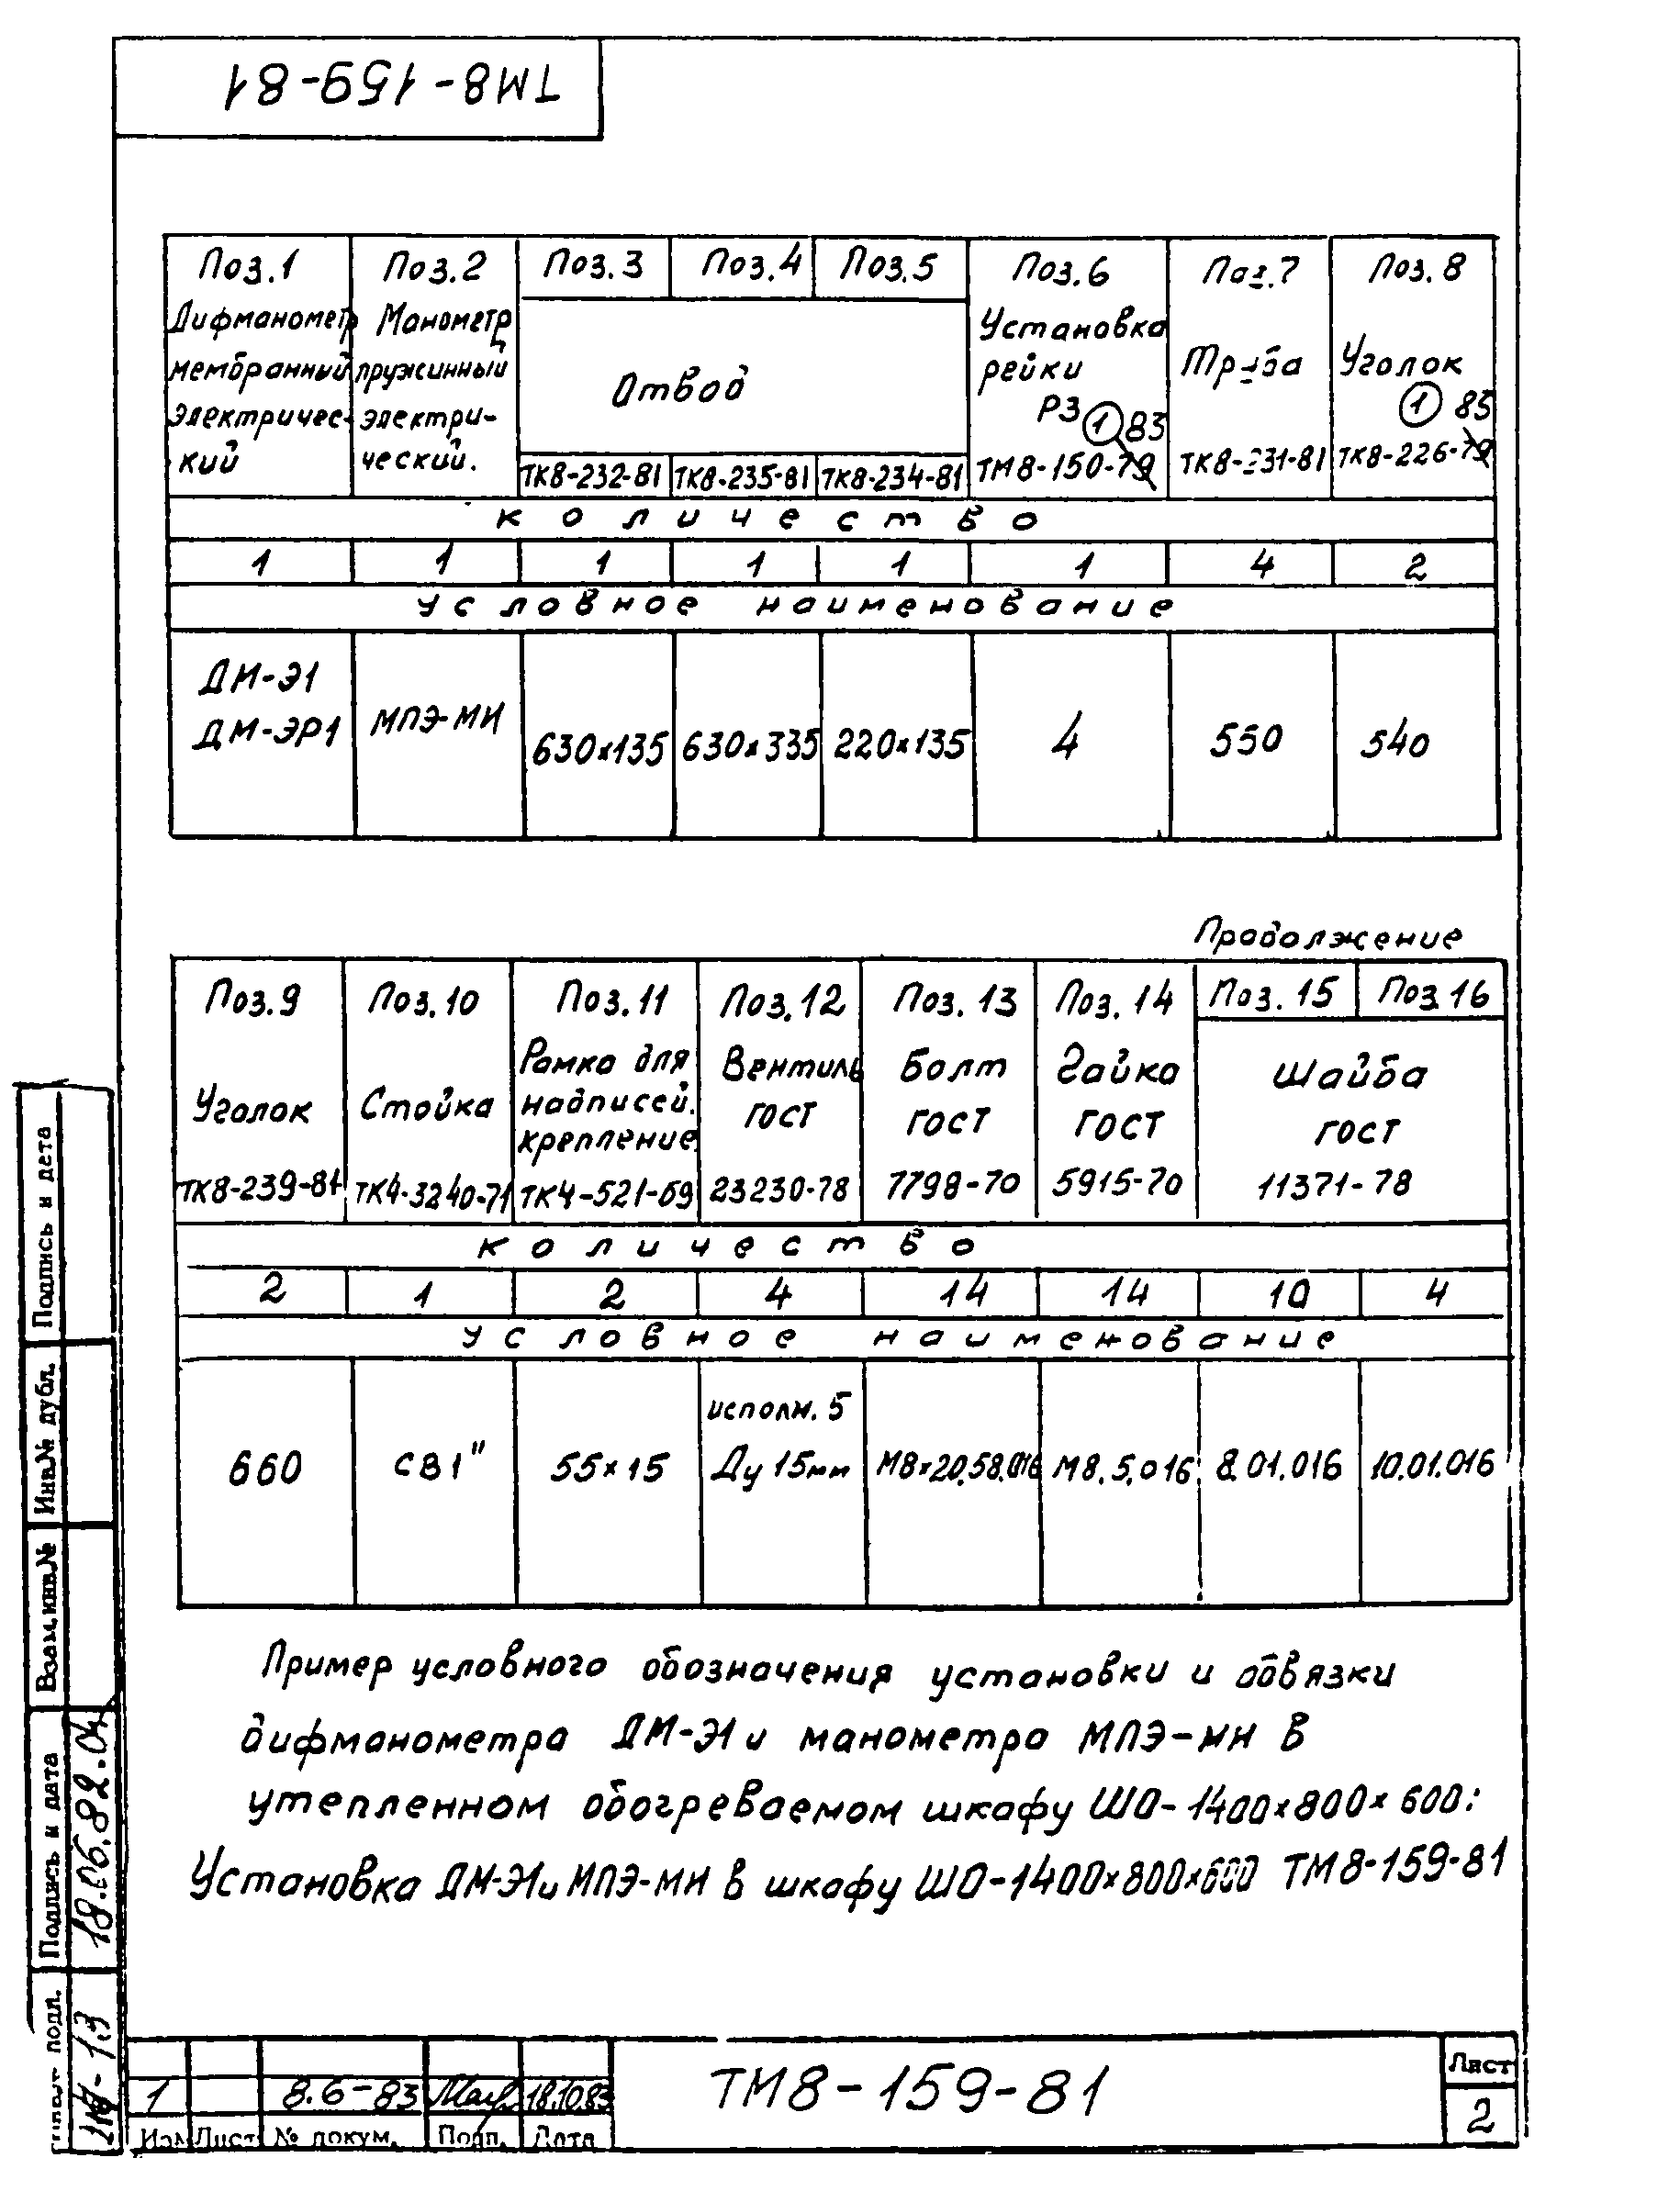 ТМ8-159-81
Поз.1 Поз.2 Поз.3 Поз.4 Поз.5 Поз.6 Поз.7 Поз.8
Дифманометр мембранный электричес-кий
Манометр пружинный электри-ческий.
Отвод
ТК8-232-81 ТК8-235-81 ТК8-234-81
Установка рейки Р3 ① 83
ТМ8-150-79
Труба
ТК8-231-81
Уголок
① 83
ТК8-226-79
количество
1 1 1 1 1 1 4 2
условное наименование
ДМ-Э1
ДМ-ЭР1
МПЭ-МИ
630х135 630х335 220х135 4 550 540
Продолжение
Поз.9 Поз.10 Поз.11 Поз.12 Поз.13 Поз.14 Поз.15 Поз.16
Уголок
ТК8-239-81
Стойка
ТК4-3240-71
Рамка для
надписей.
крепление
ТК4-521-69
Вентиль
гост
23230-78
Болт
гост
7798-70
Гайка
гост
5915-70
шайба
гост
11371-78
количество
2 1 2 4 14 14 10 4
условное наименование
660 СВ1" 55х15
исполн. 5
Ду 15мм
М8х20.58.016 М8.5.016 8.01.016 10.01.016
Пример условного обозначения установки и обвязки
дифманометра ДМ-Э1 и манометра МПЭ-МИ в
утепленном обогреваемом шкафу ШО-1400х800х600:
Установка ДМ-Э1 и МПЭ-МИ в шкафу ШО-1400х800х600 ТМ8-159-81
Подпись и дата
Инв.№ дубл.
Взам.инв.№
Подпись и дата
подл.
1 8.6-83 18.10.83
Изм Лист № докум. Подп. Дата
ТМ8-159-81
Лист
2